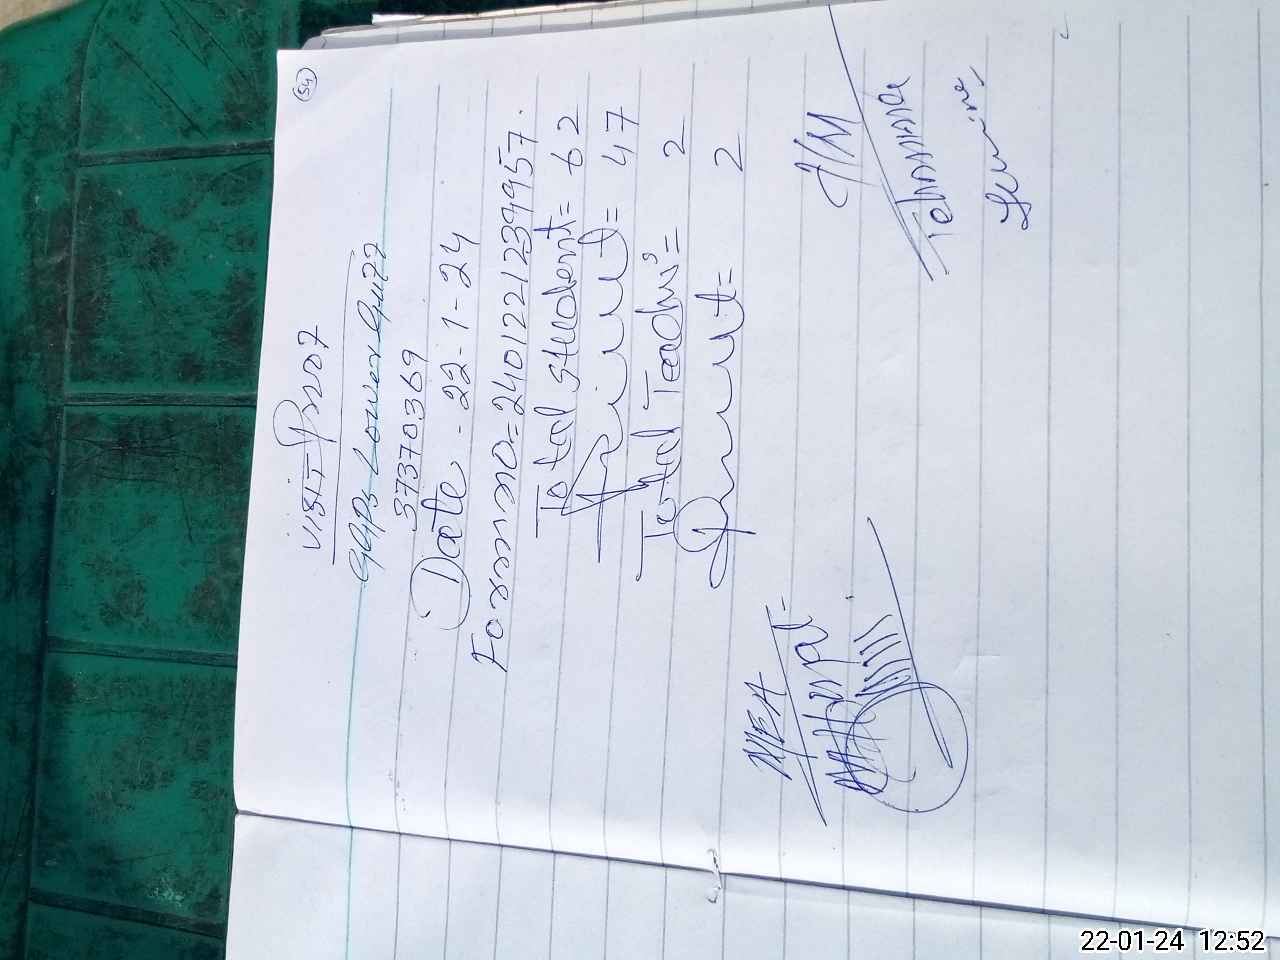 54
VISIT Proof
GGPS Lower Guzz
37370369
Date - 22-1-24
Formno=2401221239957.
Total student= 62
Present= 47
Total Teachers= 2
Present= 2
MEA
T/M
22-01-24 12:52